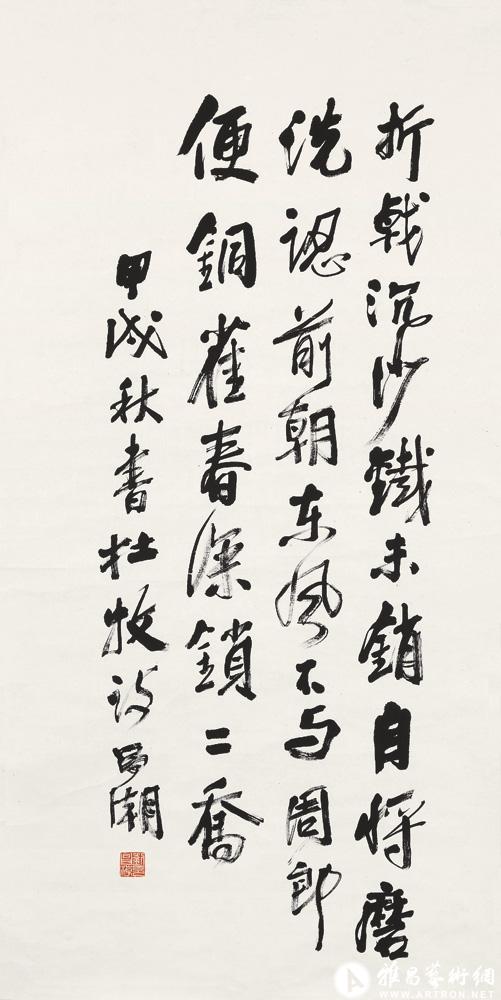 折戟沉沙鐵未銷自将磨
洗認前朝东风不与周郎
便銅雀春深鎖二喬
甲戌秋書杜牧诗 潮
雅昌藝術網
WWW.ARTRON.NET